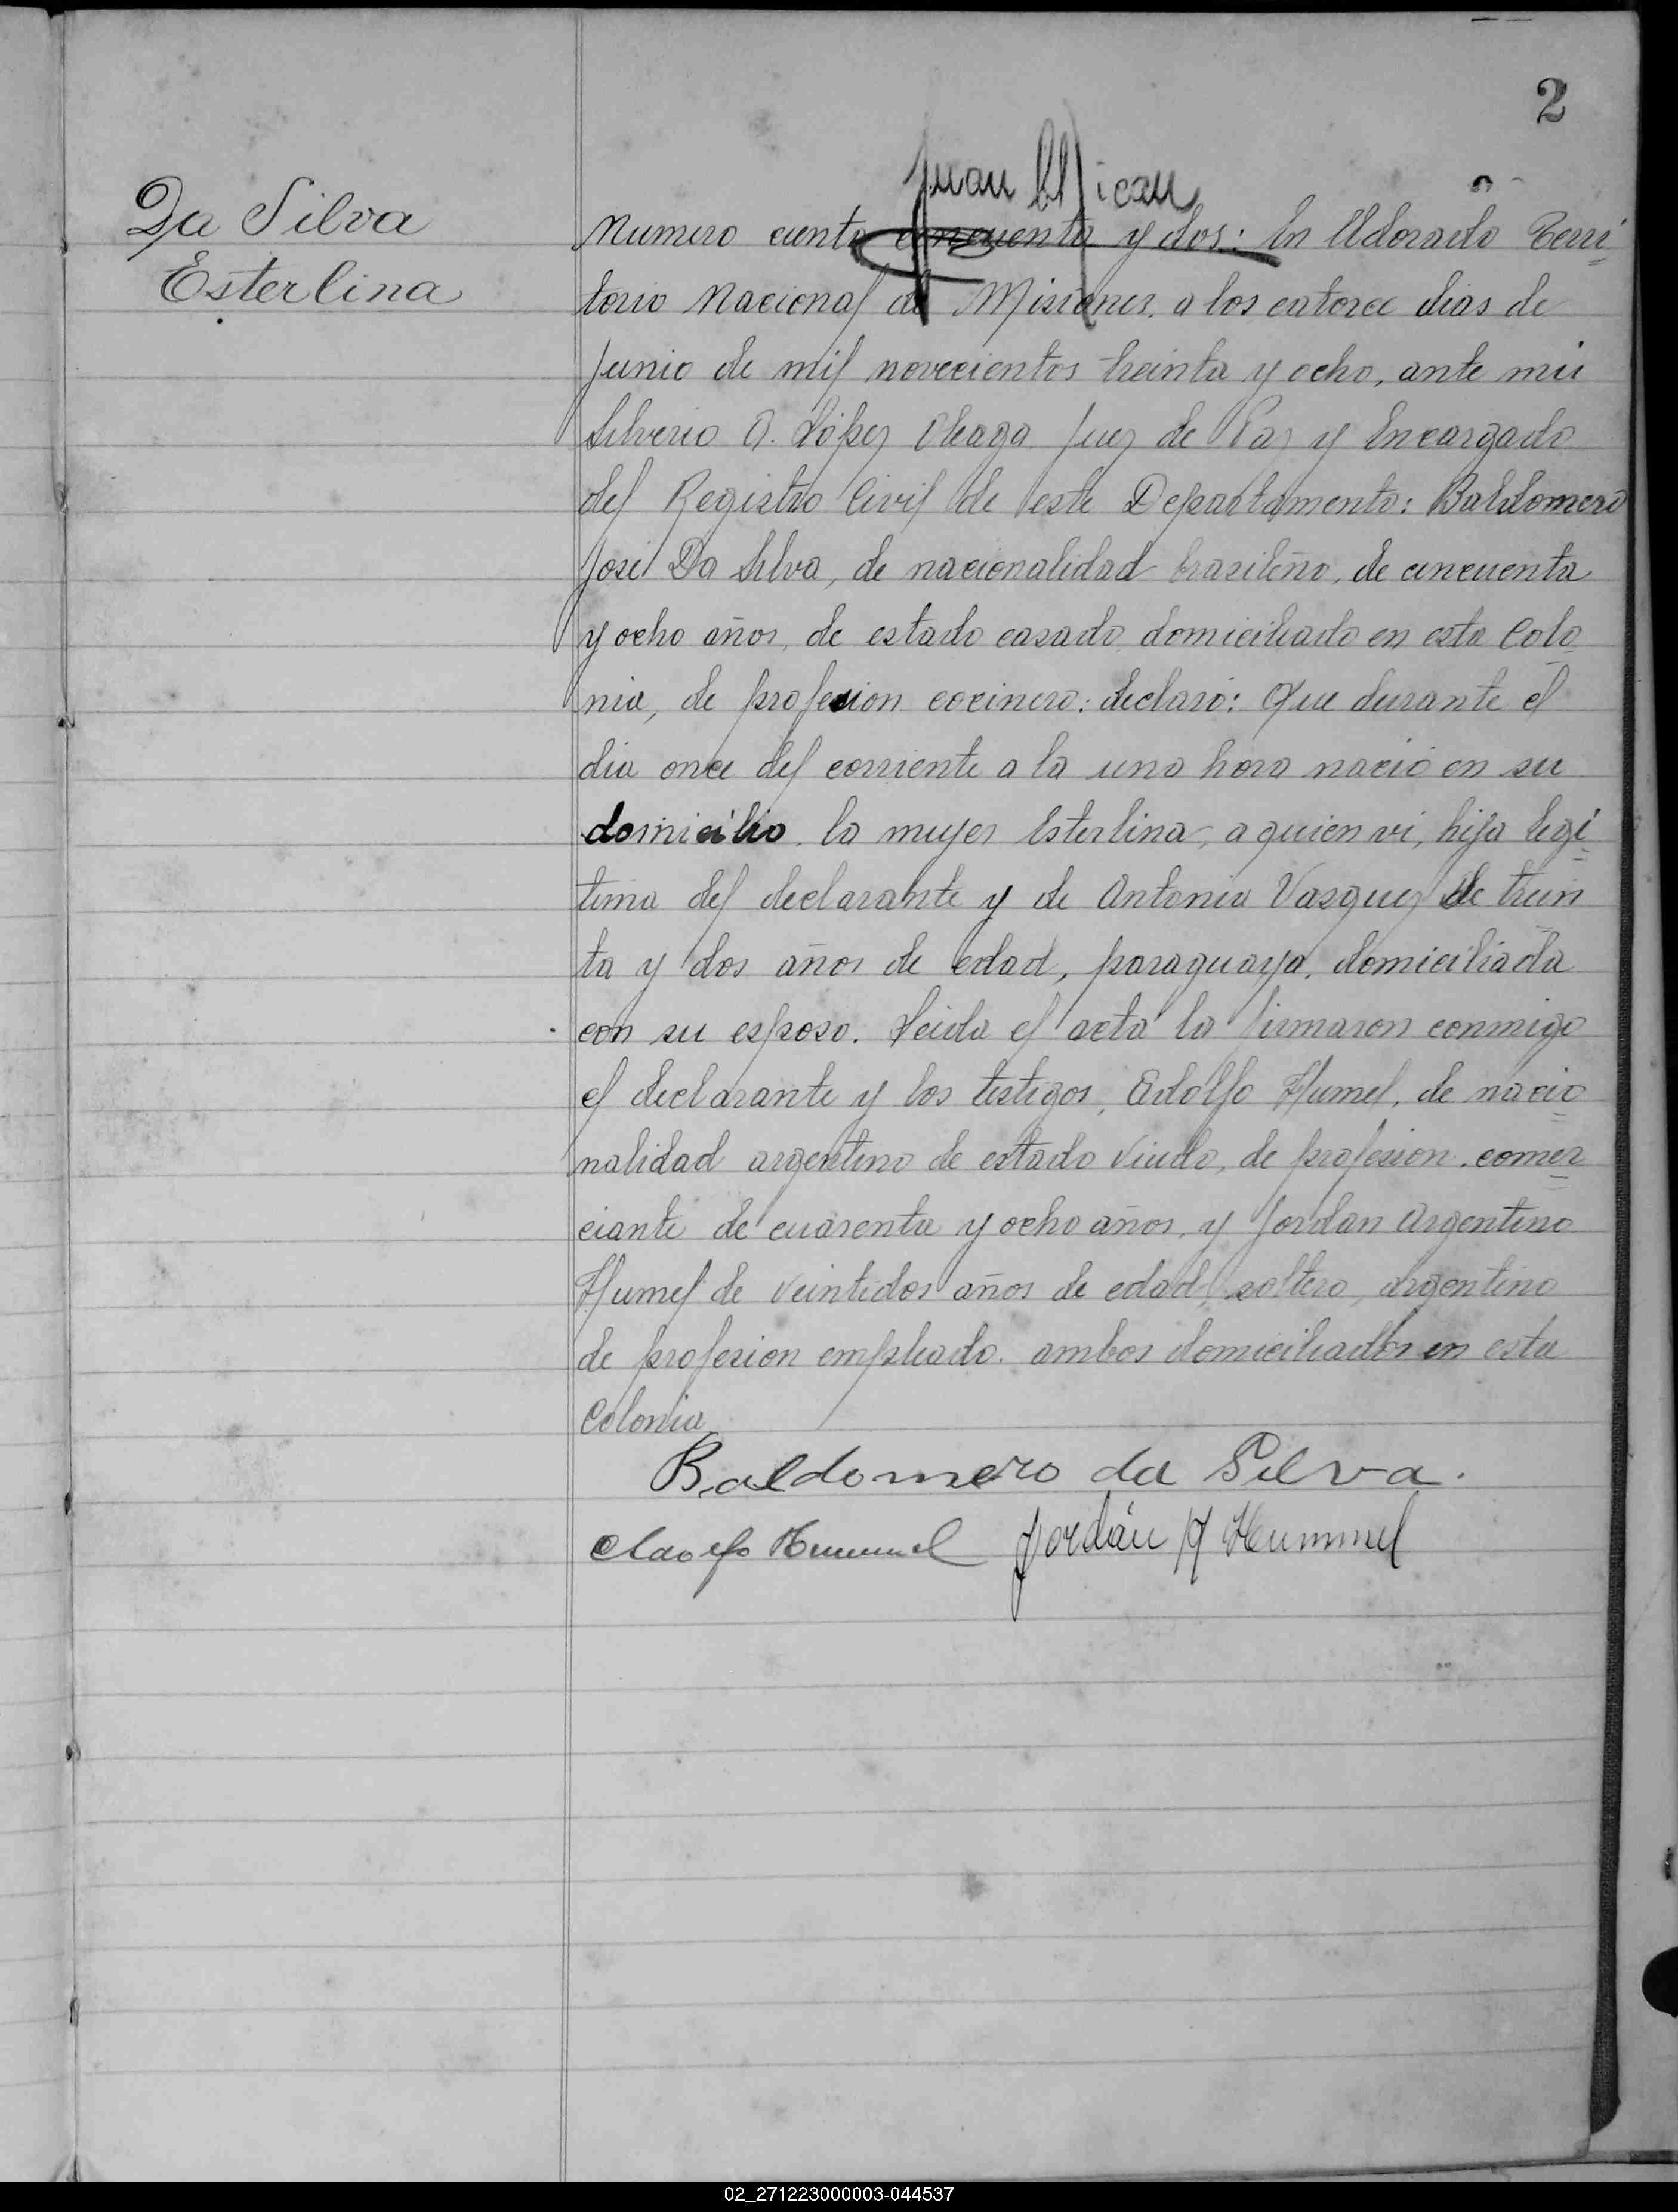 2
Da Silva
Esterlina
Juan
Numero ciento cincuenta y dos: En Eldorado Terri
torio Nacional de Misiones, a los catorce dias de
Junio de mil novecientos treinta y ocho, ante mi
Silverio A. López Aleaga Juez de Paz y Encargado
del Registro Civil de este Departamento: Baldomero
José Da Silva, de nacionalidad brasileño, de cincuenta
y ocho años, de estado casado domiciliado en esta Colo
nia, de profesion cocinero: declaró: Que durante el
dia once del corriente a la una hora nació en su
domicilio. la mujer Esterlina, a quien vi, hija legi
tima del declarante y de Antonia Vasquez de trein
ta y dos años de edad, paraguaya, domiciliada
con su esposo. Leida el acta la firmaron conmigo
el declarante y los testigos, Adolfo Humel, de nacio
nalidad argentino de estado viudo, de profesion comer
ciante de cuarenta y ocho años, y Jordan Argentino
Humel de veintidos años de edad, soltero, argentino
de profesion empleado. ambos domiciliados en esta
Colonia
Baldomero da Silva.
Adolfo Hummel Jordán A Hummel
02_271223000003-044537